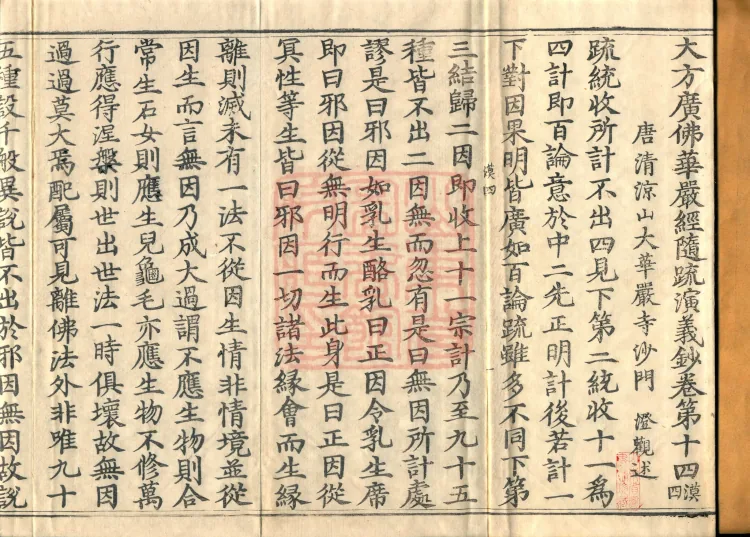 大方廣佛華嚴經隨疏演義鈔卷第十四 漠四
唐清涼山大華嚴寺沙門 澄觀述
疏統收所計不出四見下第二統收十一爲
四計即百論意於中二先正明計後若計一
下對因果明皆廣如百論疏雖多不同下第
漠四
三結歸二因即收上十一宗計乃至九十五
種皆不出二因無而忽有是曰無因所計處
謬是曰邪因如乳生酪乳曰正因令乳生席
即曰邪因從無明行而生此身是曰正因從
冥性等生皆曰邪因一切諸法緣會而生緣
離則滅未有一法不從因生情非情境並從
因生而言無因乃成大過謂不應生物則合
常生石女則應生兒龜毛亦應生物不修萬
行應得涅槃則世出世法一時俱壞故無因
過過莫大焉配屬可見離佛法外非唯九十
五種設千般異說皆不出於邪因無因故說